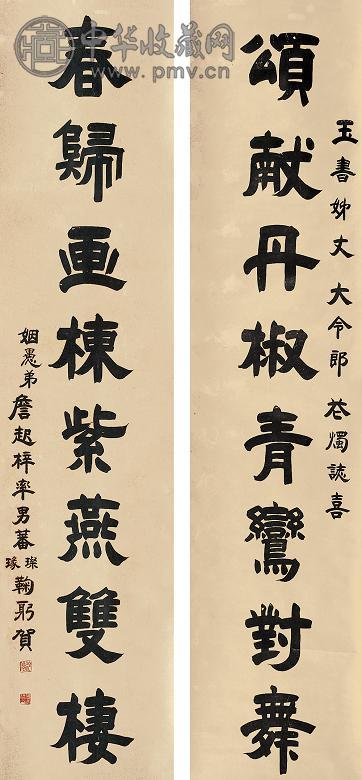 玉書姊丈大令郎花燭誌喜
頌献丹椒青鸞對舞
春歸画棟紫燕雙棲
姻愚弟詹起梓率男蕃璨瑑鞠躬賀
中华收藏网
www.pmv.cn